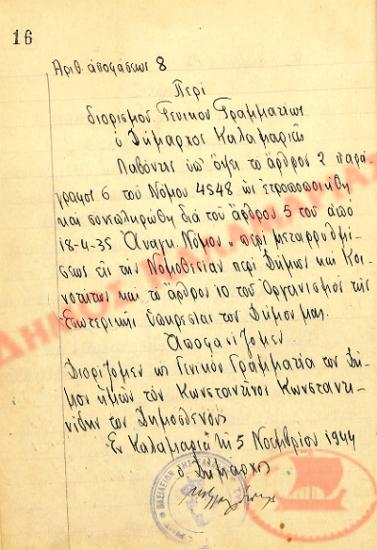 16
Αριθ. αποφάσεως 8
Περί
διορισμού Γενικού Γραμματέως
ο Δήμαρχος Καλαμαριάς
Λαβόντες υπ' όψει το άρθρον 2 παρά
γραφος 6 του Νόμου 4548 ως ετροποποιήθη
και συνεπληρώθη διά του άρθρου 5 του από
18-4-35 Αναγκ. Νόμου "περί μεταρρυθμί
σεως της των Νομοθεσίαν περί Δήμων και Κοι
νοτήτων και το άρθρον 10 του Οργανισμού της
Εσωτερικής Υπηρεσίας του Δήμου μας.
Αποφασίζομεν
Διορίζομεν ως Γενικόν Γραμματέα του Δή
μου ημών τον Κωνσταντίνον Κωνσταντι
νίδην του Δημοσθένους
Εν Καλαμαριά τη 5 Νοεμβρίου 1944
ο Δήμαρχος
ΔΗΜΟΣ ΚΑΛΑΜΑΡΙΑΣ